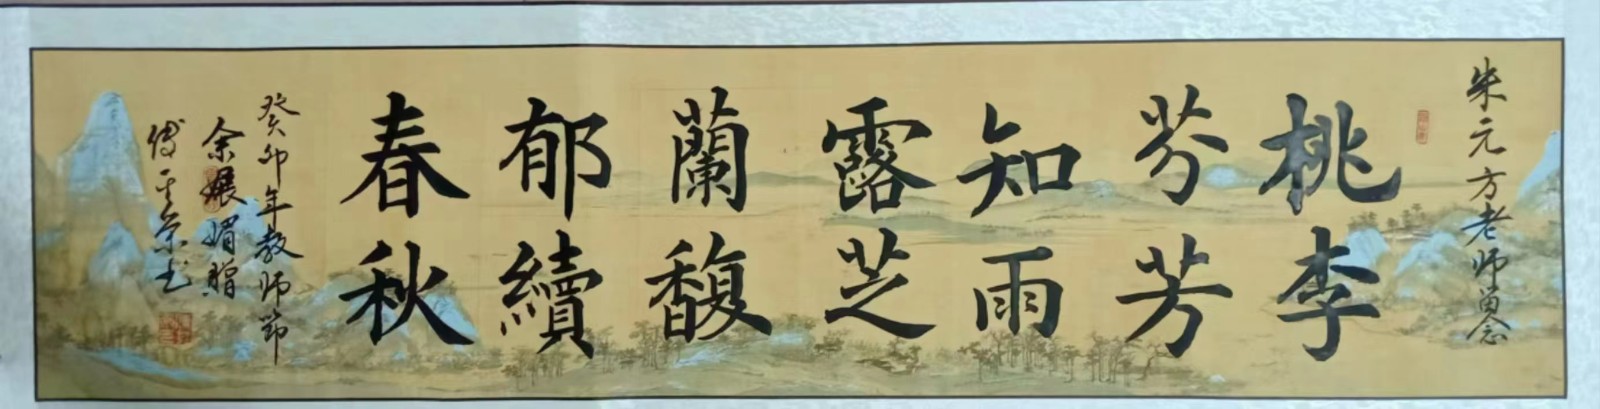 朱元方老师留念
桃李
芬芳
知雨
露芝
蘭馥
郁續
春秋
癸卯年教师节
余娘媚贈
傅
书